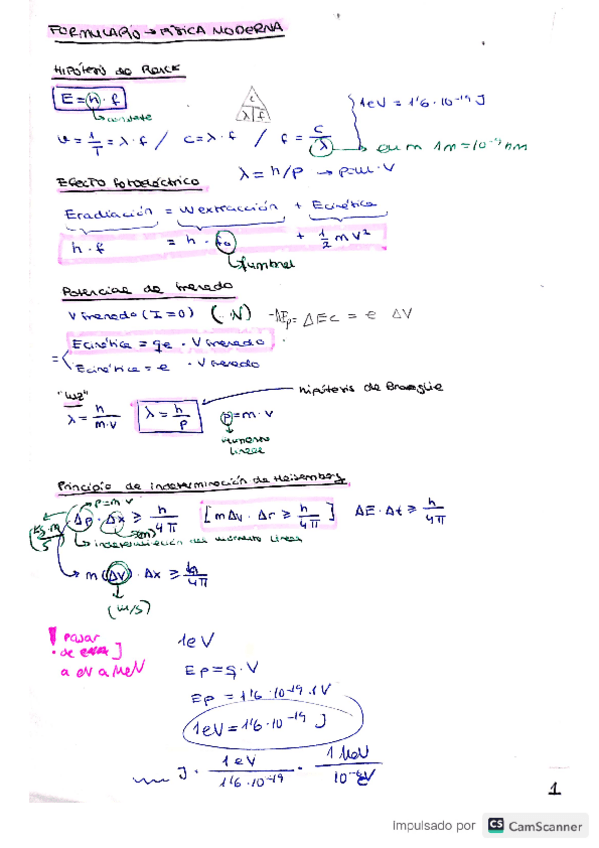 FORMULARIO → FÍSICA MODERNA
HIPÓTESIS de PLANCK
E = h · f
↳ constante
v = 1/T = λ · f / C = λ · f / f = C/λ → en m 1m = 10⁻⁹ nm
C
λ f
1eV = 1'6 · 10⁻¹⁹ J
λ = h/p → p = m · v
EFECTO FOTOELÉCTRICO
E radiación = W extracción + E cinética
h · f = h · f₀ + 1/2 m v²
↳ umbral
Potencial de frenado
V frenado (I = 0)
-ΔEp = ΔEc = e ΔV
E cinética = qe · V frenado
E cinética = e · V frenado
"luz"
λ = h/m·v
λ = h/p
hipótesis de Broglie
p = m · v
momento
lineal
Principio de indeterminación de Heisemberg
p = m v
Δp · Δx ≥ h/4π [mΔv · Δr ≥ h/4π] ΔE · Δt ≥ h/4π
(kg·m/s)
(m)
↳ indeterminación del momento lineal
→ m (Δv) · Δx ≥ h/4π
(m/s)
! Pasar
de J
a eV a MeV
1eV
Ep = q · V
Ep = 1'6 · 10⁻¹⁹ · 1V
1eV = 1'6 · 10⁻¹⁹ J
J · 1 eV/1'6 · 10⁻¹⁹ · 1 MeV/
1
Impulsado por CS CamScanner